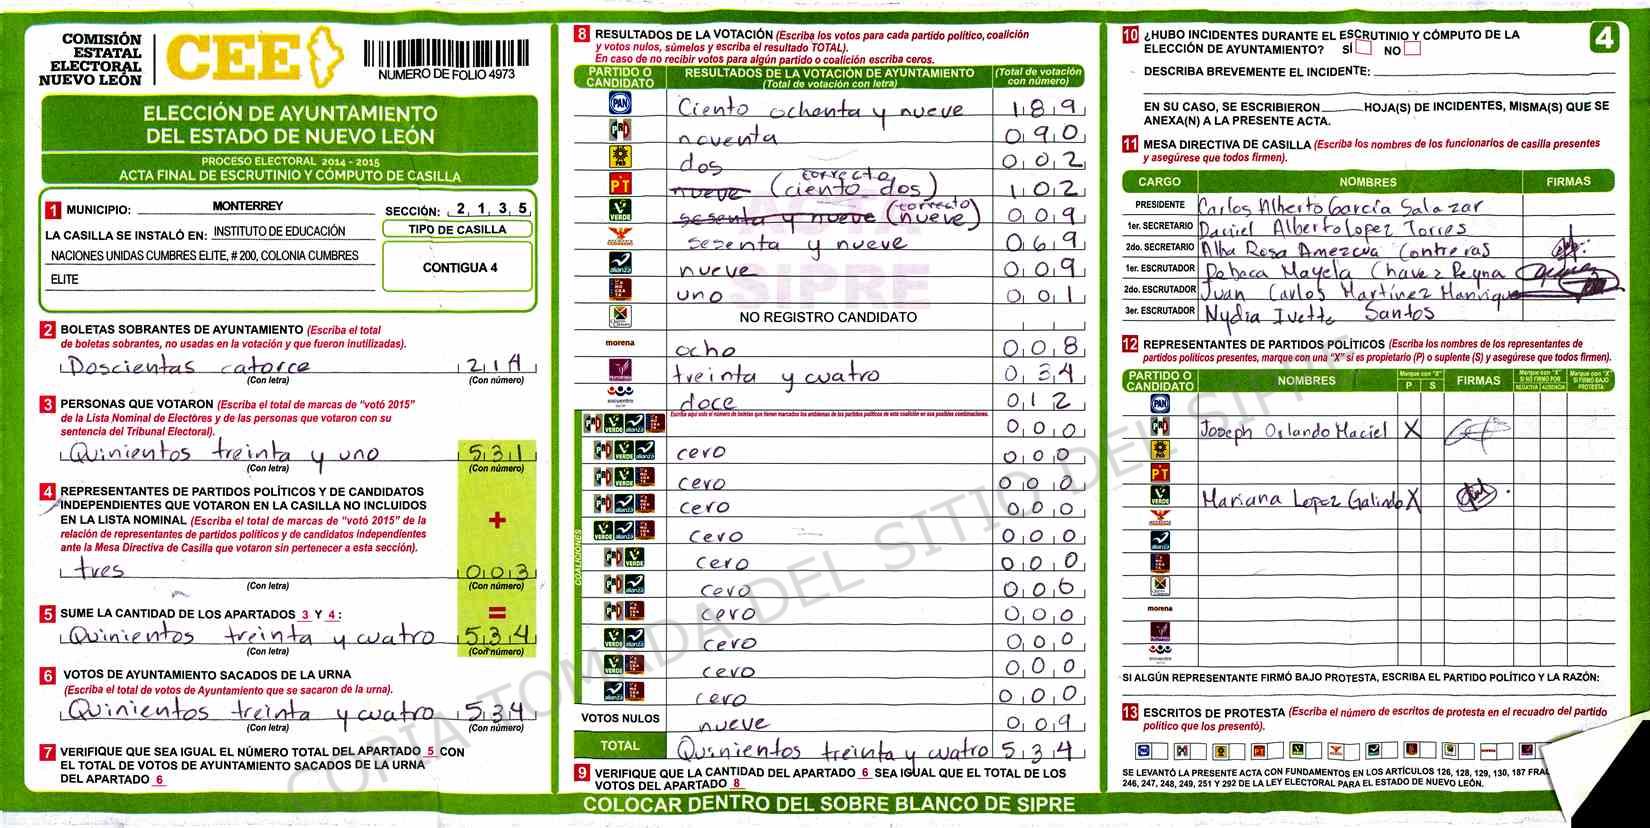 COMISIÓN
ESTATAL
ELECTORAL
NUEVO LEÓN
CEE
NUMERO DE FOLIO 4973
ELECCIÓN DE AYUNTAMIENTO
DEL ESTADO DE NUEVO LEÓN
PROCESO ELECTORAL 2014 - 2015
ACTA FINAL DE ESCRUTINIO Y CÓMPUTO DE CASILLA
1 MUNICIPIO: MONTERREY SECCIÓN: 2 1 3 5
LA CASILLA SE INSTALÓ EN: INSTITUTO DE EDUCACIÓN
NACIONES UNIDAS CUMBRES ELITE, # 200, COLONIA CUMBRES
ELITE
TIPO DE CASILLA
CONTIGUA 4
2 BOLETAS SOBRANTES DE AYUNTAMIENTO (Escriba el total
de boletas sobrantes, no usadas en la votación y que fueron inutilizadas).
Doscientas catorce 2 1 4
(Con letra) (Con número)
3 PERSONAS QUE VOTARON (Escriba el total de marcas de “votó 2015”
de la Lista Nominal de Electores y de las personas que votaron con su
sentencia del Tribunal Electoral).
Quinientos treinta y uno 5 3 1
(Con letra) (Con número)
4 REPRESENTANTES DE PARTIDOS POLÍTICOS Y DE CANDIDATOS
INDEPENDIENTES QUE VOTARON EN LA CASILLA NO INCLUIDOS
EN LA LISTA NOMINAL (Escriba el total de marcas de “votó 2015” de la
relación de representantes de partidos políticos y de candidatos independientes
ante la Mesa Directiva de Casilla que votaron sin pertenecer a esta sección).
+
tres 0 0 3
(Con letra) (Con número)
5 SUME LA CANTIDAD DE LOS APARTADOS 3 Y 4 : =
Quinientos treinta y cuatro 5 3 4
(Con letra) (Con número)
6 VOTOS DE AYUNTAMIENTO SACADOS DE LA URNA
(Escriba el total de votos de Ayuntamiento que se sacaron de la urna).
Quinientos treinta y cuatro 5 3 4
(Con letra) (Con número)
7 VERIFIQUE QUE SEA IGUAL EL NÚMERO TOTAL DEL APARTADO 5 CON
EL TOTAL DE VOTOS DE AYUNTAMIENTO SACADOS DE LA URNA
DEL APARTADO 6
8 RESULTADOS DE LA VOTACIÓN (Escriba los votos para cada partido político, coalición
y votos nulos, súmelos y escriba el resultado TOTAL).
En caso de no recibir votos para algún partido o coalición escriba ceros.
PARTIDO O CANDIDATO RESULTADOS DE LA VOTACIÓN DE AYUNTAMIENTO (Total de votación con letra) (Total de votación con número)
PAN Ciento ochenta y nueve 1 8 9
PRD noventa 0 9 0
PRD dos 0 0 2
PT nueve (ciento dos) correcto 1 0 2
VERDE sesenta y nueve (nueve) correcto 0 0 9
sesenta y nueve 0 6 9
alianza nueve 0 0 9
uno 0 0 1
NO REGISTRO CANDIDATO
morena ocho 0 0 8
treinta y cuatro 0 3 4
encuentro doce 0 1 2
Escriba aquí solo el número de boletas que tienen marcados los emblemas de los partidos políticos de esta coalición en sus posibles combinaciones.
COALICIONES
0 0 0
cero 0 0 0
cero 0 0 0
cero 0 0 0
cero 0 0 0
cero 0 0 0
cero 0 0 0
cero 0 0 0
cero 0 0 0
cero 0 0 0
cero 0 0 0
VOTOS NULOS nueve 0 0 9
TOTAL Quinientos treinta y cuatro 5 3 4
9 VERIFIQUE QUE LA CANTIDAD DEL APARTADO 6 SEA IGUAL QUE EL TOTAL DE LOS
VOTOS DEL APARTADO 8
COLOCAR DENTRO DEL SOBRE BLANCO DE SIPRE
ACTA
SIPRE
COPIA TOMADA DEL SITIO DEL SIPRE
4
10 ¿HUBO INCIDENTES DURANTE EL ESCRUTINIO Y CÓMPUTO DE LA
ELECCIÓN DE AYUNTAMIENTO? SÍ NO
DESCRIBA BREVEMENTE EL INCIDENTE:
EN SU CASO, SE ESCRIBIERON HOJA(S) DE INCIDENTES, MISMA(S) QUE SE
ANEXA(N) A LA PRESENTE ACTA.
11 MESA DIRECTIVA DE CASILLA (Escriba los nombres de los funcionarios de casilla presentes
y asegúrese que todos firmen).
CARGO NOMBRES FIRMAS
PRESIDENTE Carlos Alberto García Salazar
1er. SECRETARIO Daniel Alberto Lopez Torres
2do. SECRETARIO Alba Rosa Amezcua Contreras
1er. ESCRUTADOR Rebeca Mayela Chavez Reyna
2do. ESCRUTADOR Juan Carlos Martínez Manrique
3er. ESCRUTADOR Nydia Ivette Santos
12 REPRESENTANTES DE PARTIDOS POLÍTICOS (Escriba los nombres de los representantes de
partidos políticos presentes, marque con una “X” si es propietario (P) o suplente (S) y asegúrese que todos firmen).
PARTIDO O CANDIDATO NOMBRES Marque con “X” P S FIRMAS Marque con “X” SI NO FIRMÓ POR NEGATIVA AUSENCIA Marque con “X” SI FIRMÓ BAJO PROTESTA
PAN
Joseph Orlando Maciel X
PRD
PT
VERDE Mariana Lopez Galindo X
morena
encuentro
SI ALGÚN REPRESENTANTE FIRMÓ BAJO PROTESTA, ESCRIBA EL PARTIDO POLÍTICO Y LA RAZÓN:
13 ESCRITOS DE PROTESTA (Escriba el número de escritos de protesta en el recuadro del partido
político que los presentó).
SE LEVANTÓ LA PRESENTE ACTA CON FUNDAMENTOS EN LOS ARTÍCULOS 126, 128, 129, 130, 187 FRAC
246, 247, 248, 249, 251 Y 292 DE LA LEY ELECTORAL PARA EL ESTADO DE NUEVO LEÓN.